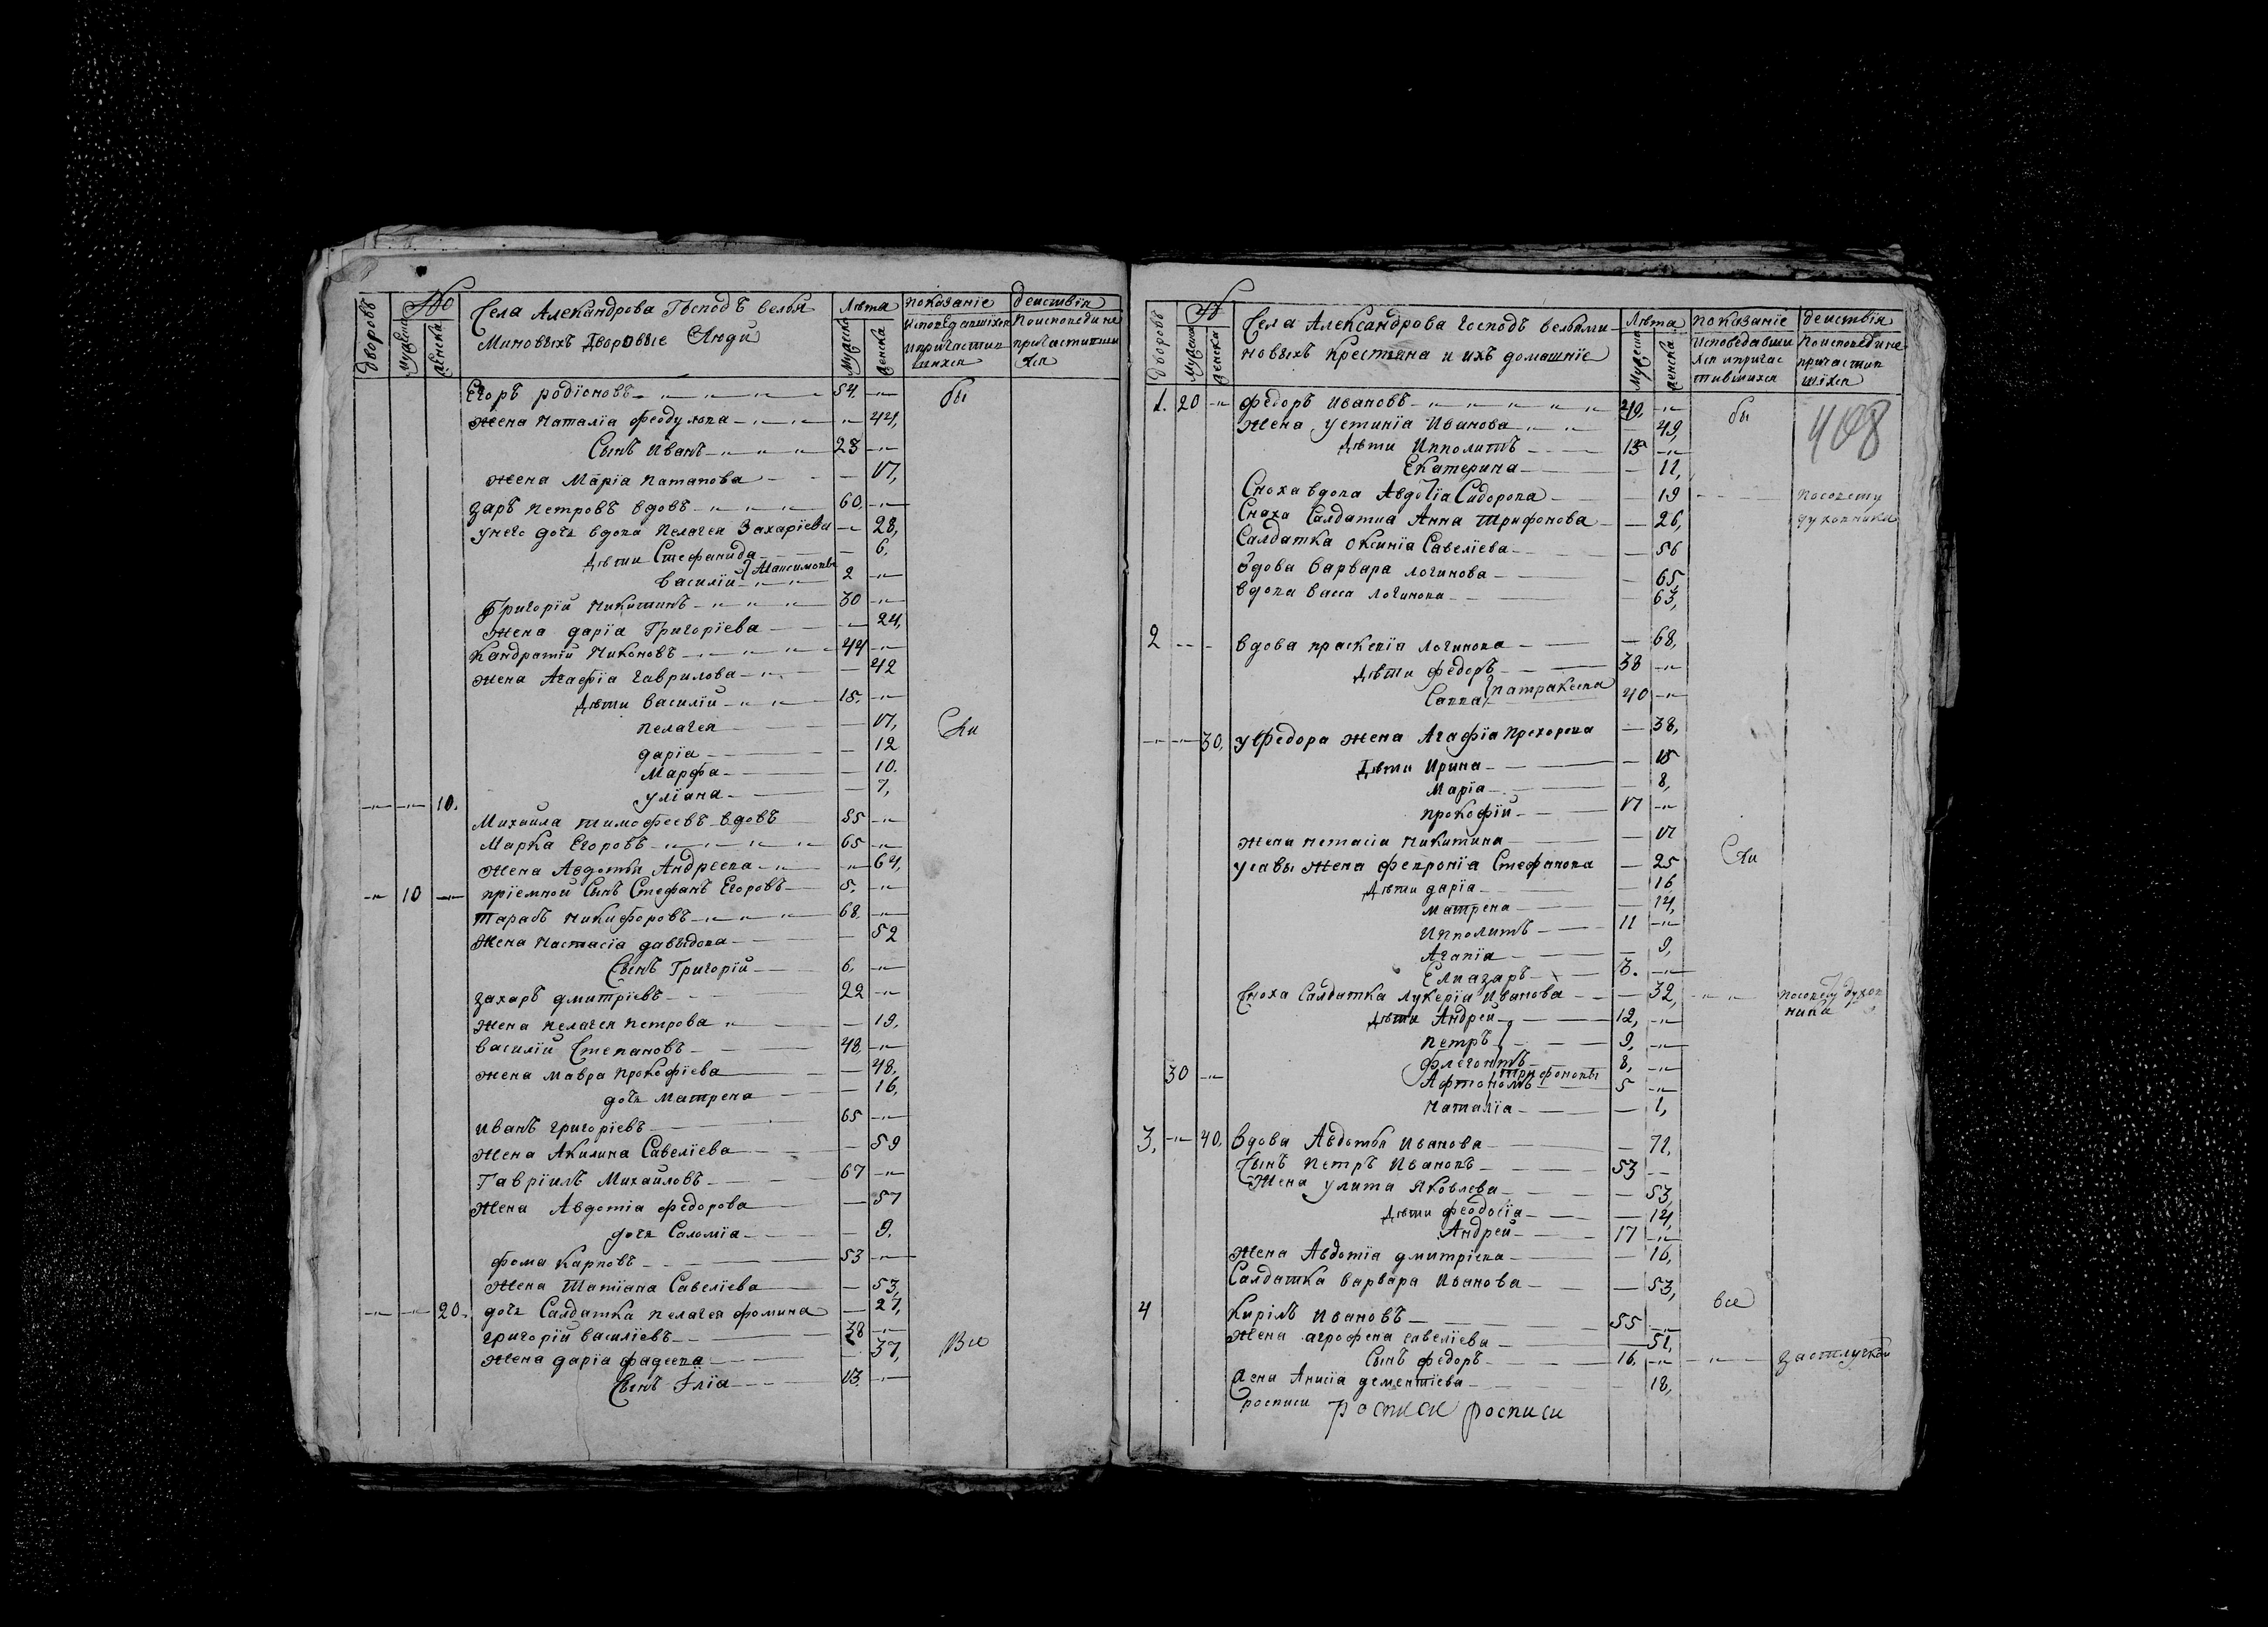 Дворовъ № Села Александрова Господъ велья Лѣта показаніе действія
мужеска женска миновыхъ Дворовые Люди мужеска женска исповедавшихся и причастившихся Поисповеди не причастившихся
Егоръ родіоновъ 54, бы
жена наталіа феодулова 44,
Сынъ Иванъ 23
жена Маріа патапова 17,
заръ петровъ вдовъ 60,
унего дочь вдова пелагея Захаріева 28,
Дѣти Стефанида 6,
василій Максимовы 2
Григорій никитинъ 30
жена даріа Григоріева 24,
Кандратій никоновъ 44
жена Агафіа гаврилова 42
Дѣти василій 15,
пелагея 17, ли
даріа 12
Марфа 10.
уліана 7,
10.
Михаила тимофеевъ вдовъ 55
Марка Егоровъ 65
жена Авдотья Андреева 64,
10 пріемной Сынъ Стефанъ Егоровъ 5,
тарасъ никифоровъ 68.
жена настасіа давыдова 52
Сынъ Григорій 6,
захаръ дмитріевъ 22
жена пелагея петрова 19.
василій Степановъ 48,
жена мавра прокофіева 48,
дочь матрена 16,
иванъ григоріевъ 65
жена Акилина Савеліева 59
Гавріилъ Михаиловъ 67
жена Авдотіа федорова 57
дочь Саломіа 9.
фома карповъ 53
жена татіана Савеліева 53,
20. дочь Салдатка пелагея фомина 27,
григорій василіевъ 38
жена даріа фадеева 37, Все
Сынъ Иліа 13.
Дворовъ № Села Александрова господъ вельями Лѣта показаніе действія
мужеска женска новыхъ крестьяна и ихъ домашніе мужеска женска исповедавшихся и причастившихся Поисповеди не причастившихся
1. 20 федоръ ивановъ 49, бы 408
жена устиніа Иванова 49,
Дѣти Ипполитъ 15
Екатерина 11,
Сноха вдова Авдотіа Сидорова 19 посовету
Сноха Салдатка Анна трифонова 26, духовника
Салдатка оксиніа Савеліева 56
вдова варвара логинова 65,
вдова васса логинова 63,
2 вдова праскевіа логинова 68,
Дѣти федоръ 38
Савва патракеева 40
30. уфедора жена Агафіа прохорова 38,
Дѣти Ирина 15
Маріа 8,
прокофій 17
жена нстасіа никитина 17
усавы жена февроніа Стефанова 25 ли
Дѣти даріа 16
матрена 14,
Ипполитъ 11
Агапіа 9,
Елиазаръ 3.
Сноха Салдатка лукеріа иванова 32, посовету духов
Дѣти Андрей 12, ника
петръ 9,
флегонтъ 8,
30 Афтономъ трифоновы 5
наталіа 1,
3, 40. вдова Авдотья иванова 72,
Сынъ петръ ивановъ 53
жена улита яковлева 53,
Дѣти феодосіа 14,
Андрей 17
жена Авдотіа дмитріева 16,
Салдатка варвара иванова 53,
4 кирілъ ивановъ 55 все
жена агрофена савеліева 51,
Сынъ федоръ 16. заотлучкой
жена Анисіа дементіева 18,
росписи росписи росписи